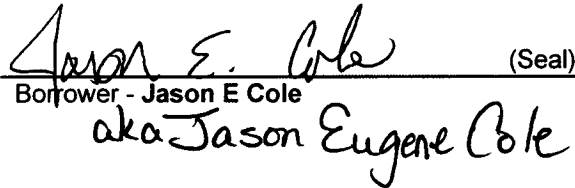 Jason E. Cole (Seal)
Borrower - Jason E Cole
aka Jason Eugene Cole